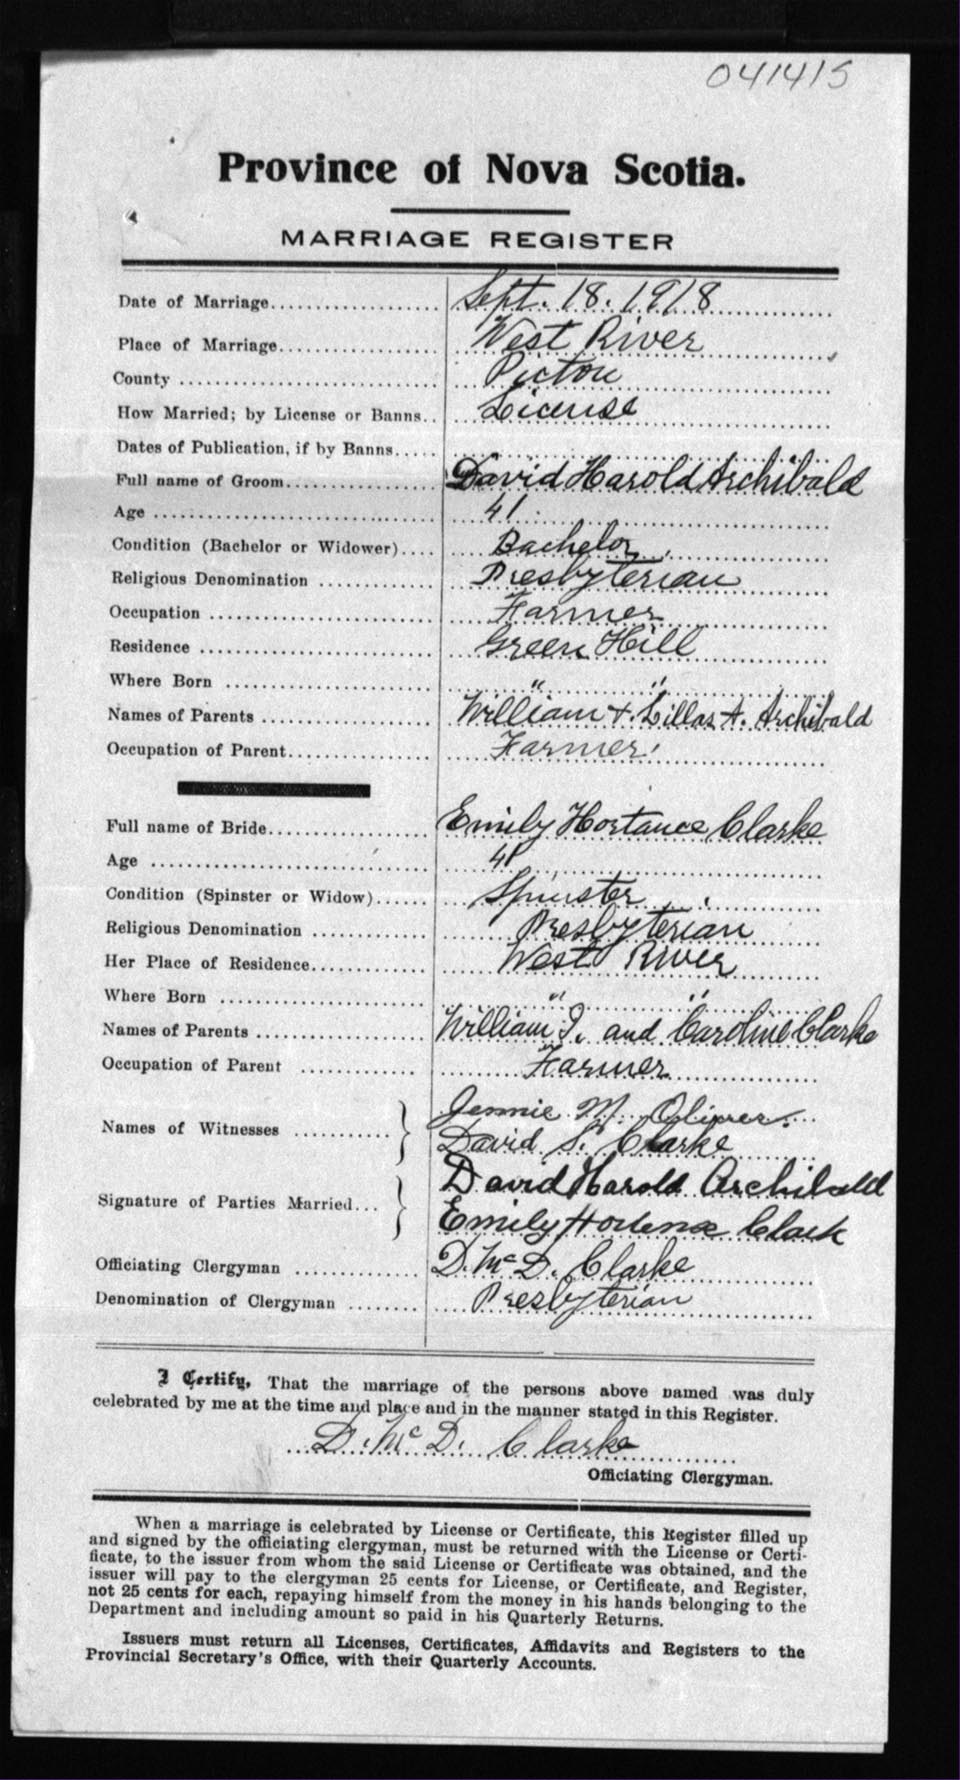 041415
Province of Nova Scotia.
MARRIAGE REGISTER
Date of Marriage.................... Sept. 18. 1918
Place of Marriage................... West River
County .............................. Pictou
How Married; by License or Banns.. License
Dates of Publication, if by Banns.....
Full name of Groom.................. David Harold Archibald
Age ................................. 41
Condition (Bachelor or Widower).... Bachelor
Religious Denomination .............. Presbyterian
Occupation .......................... Farmer
Residence ........................... Green Hill
Where Born .......................... " "
Names of Parents .................... William & Lillas A. Archibald
Occupation of Parent................. Farmer
Full name of Bride................... Emily Hortance Clarke
Age ................................. 41
Condition (Spinster or Widow)...... Spinster
Religious Denomination .............. Presbyterian
Her Place of Residence.............. West River
Where Born .......................... " "
Names of Parents .................... William J. and Caroline Clarke
Occupation of Parent ................ Farmer
Names of Witnesses ........... } Jennie M. Oliver.
David S. Clarke
Signature of Parties Married... } David Harold Archibald
Emily Hortense Clark
Officiating Clergyman .............. D. McD. Clarke
Denomination of Clergyman ........ Presbyterian
I Certify, That the marriage of the persons above named was duly
celebrated by me at the time and place and in the manner stated in this Register.
D. McD. Clarke
Officiating Clergyman.
When a marriage is celebrated by License or Certificate, this Register filled up
and signed by the officiating clergyman, must be returned with the License or Certi-
ficate, to the issuer from whom the said License or Certificate was obtained, and the
issuer will pay to the clergyman 25 cents for License, or Certificate, and Register,
not 25 cents for each, repaying himself from the money in his hands belonging to the
Department and including amount so paid in his Quarterly Returns.
Issuers must return all Licenses, Certificates, Affidavits and Registers to the
Provincial Secretary's Office, with their Quarterly Accounts.